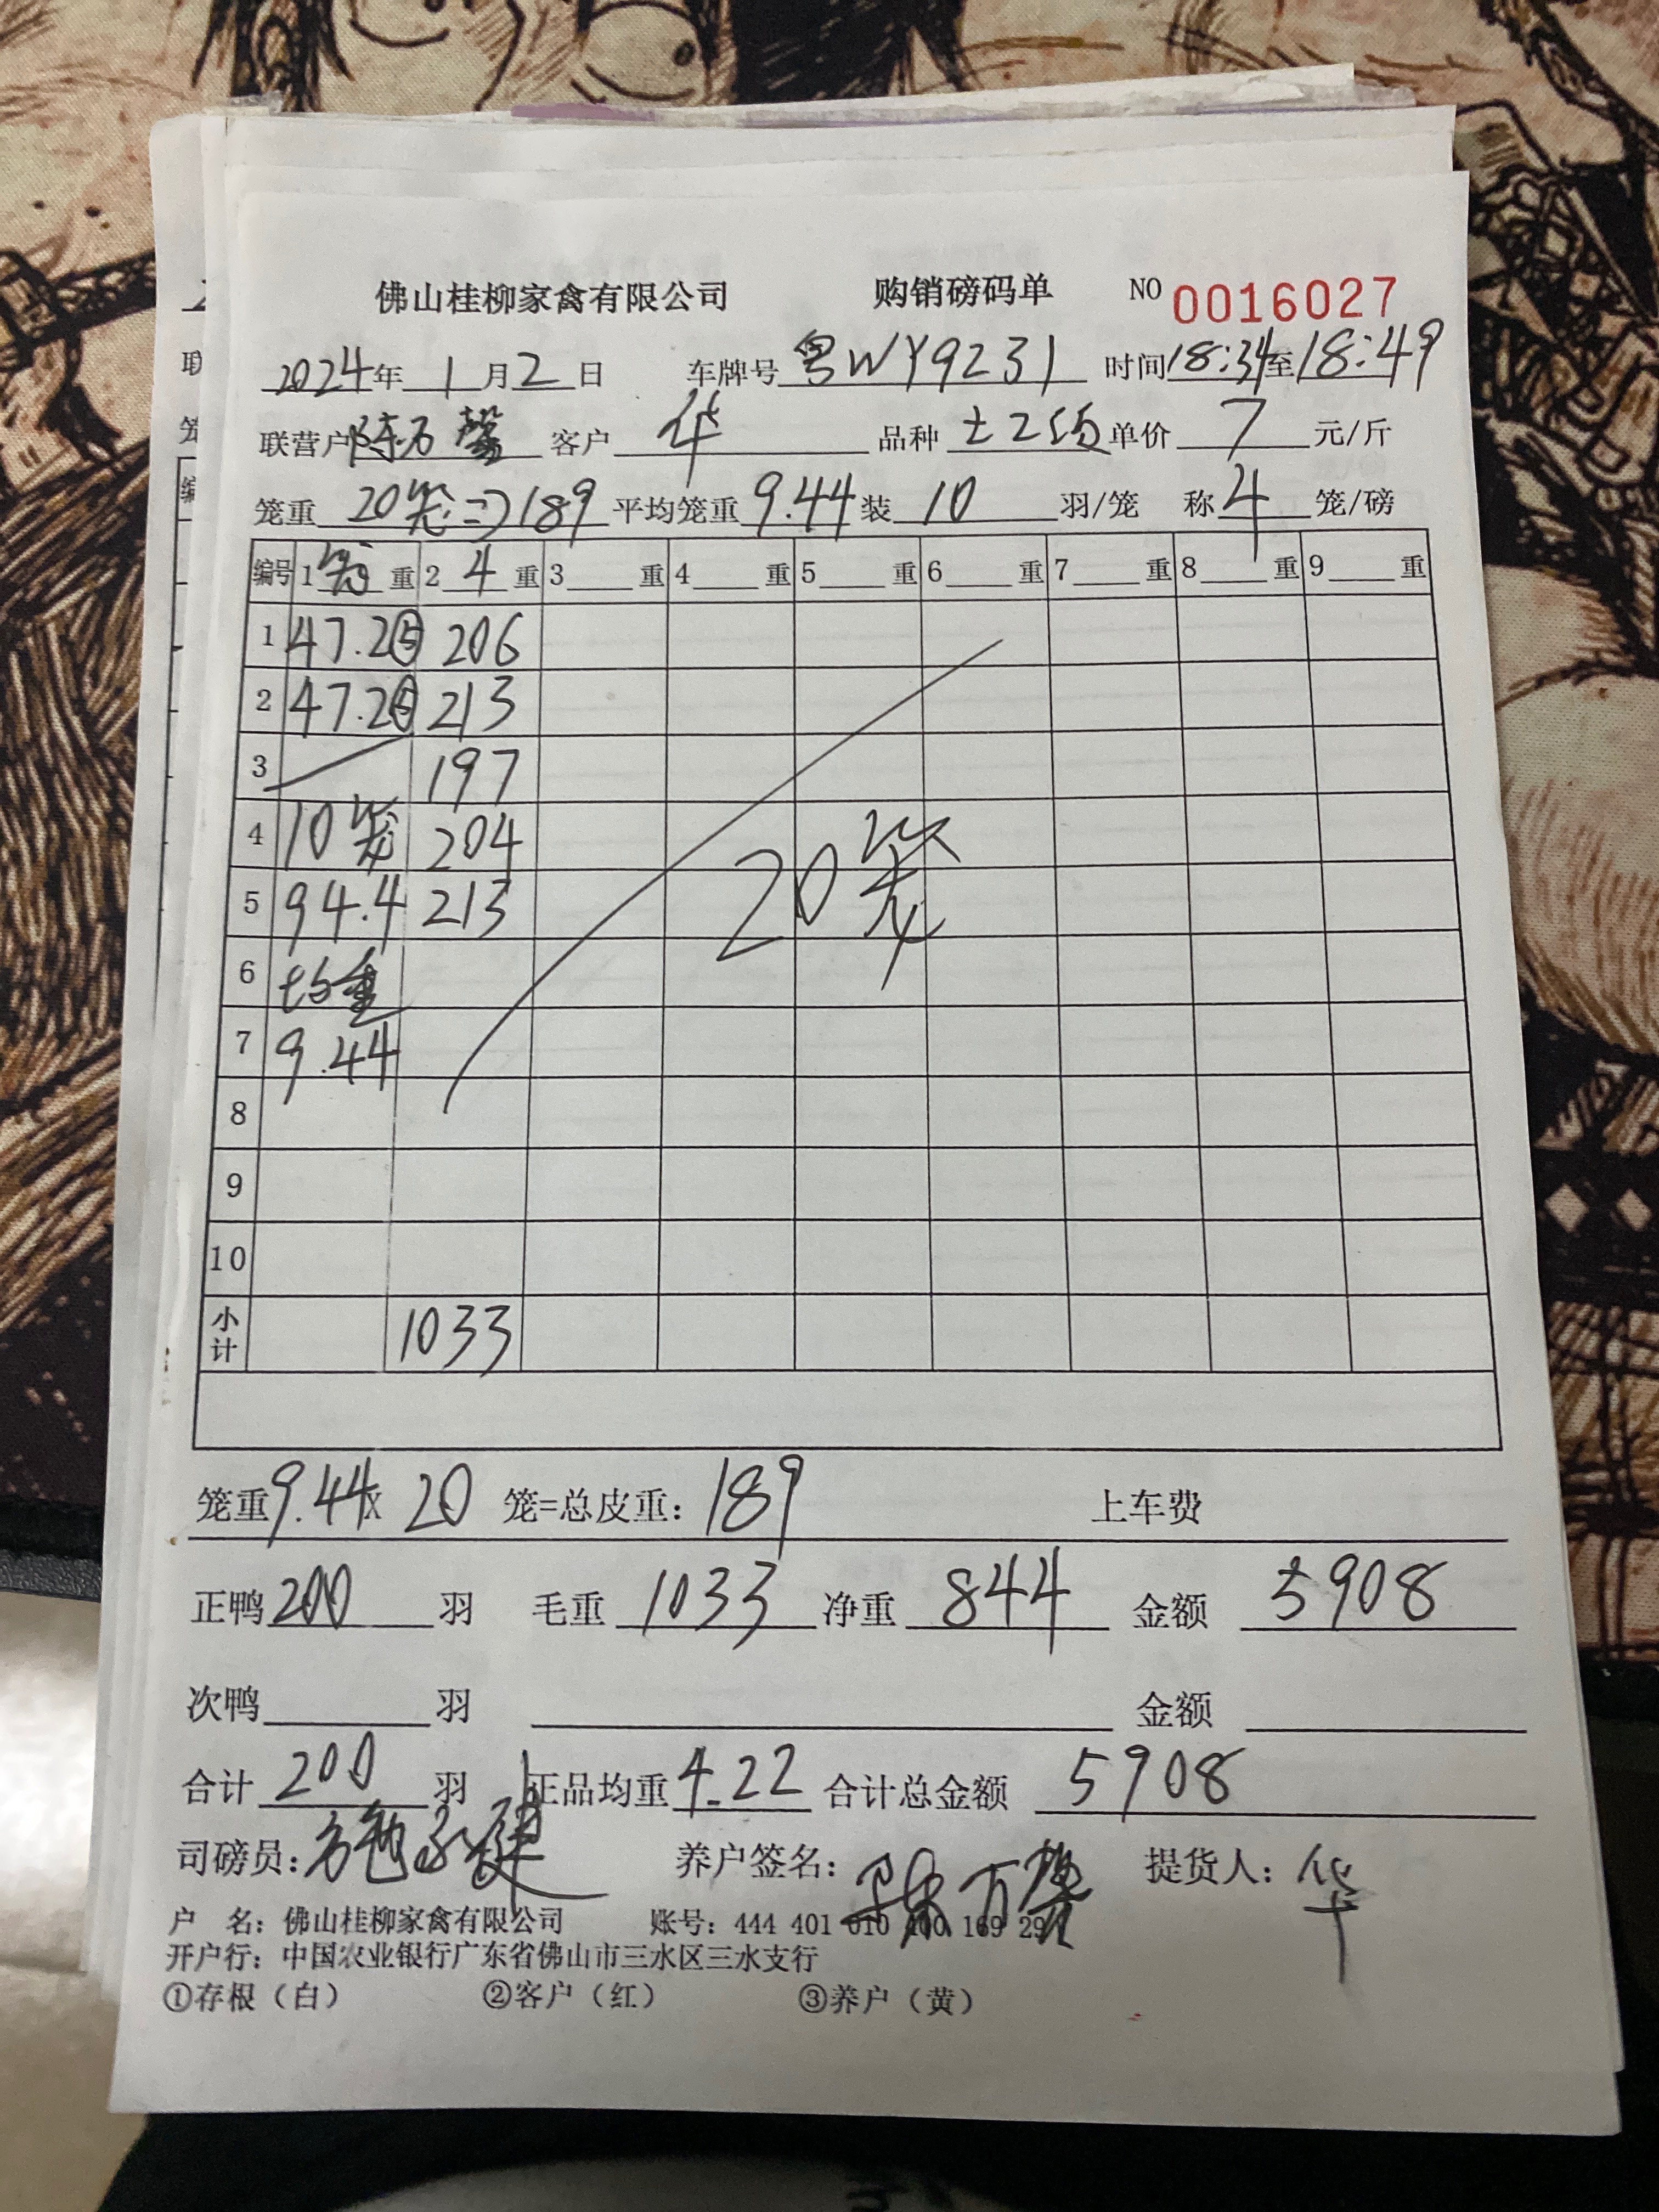 佛山桂柳家禽有限公司 购销磅码单 NO 0016027
2024年 1月2日 车牌号 粤WY9231 时间18:34至18:49
联营户 陈万馨 客户 华 品种 土2 单价 7 元/斤
笼重 20笼=189 平均笼重 9.44 装 10 羽/笼 称 4 笼/磅
编号 1 重 2 4 重 3 重 4 重 5 重 6 重 7 重 8 重 9 重
1 47.2⑤ 206
2 47.2⑤ 213
3 197
4 10笼 204
20笼
5 94.4 213
6 均重
7 9.44
8
9
10
小计 1033
笼重9.44× 20 笼=总皮重: 189 上车费
正鸭200 羽 毛重 1033 净重 844 金额 5908
次鸭 羽 金额
合计 200 羽 正品均重 4.22 合计总金额 5908
司磅员: 养户签名: 陈万馨 提货人: 华
户 名: 佛山桂柳家禽有限公司 账号: 444 401 010 169
开户行: 中国农业银行广东省佛山市三水区三水支行
①存根（白） ②客户（红） ③养户（黄）